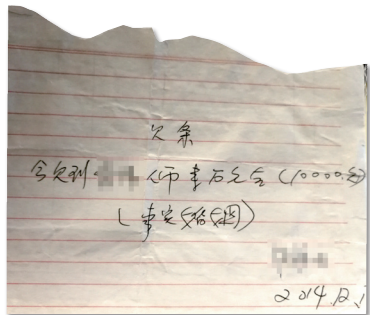 欠条
今欠到 人币壹万元整(10000元)
(事实婚姻)
2014.12.1